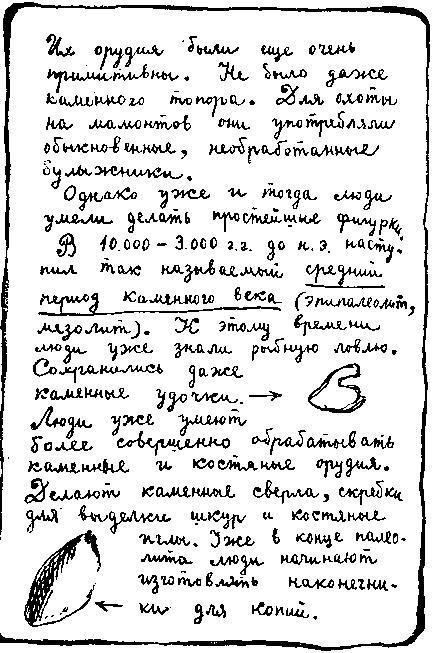 Их орудия были еще очень
примитивны. Не было даже
каменного топора. Для охоты
на мамонтов они употребляли
обыкновенные, необработанные
булыжники.
Однако уже и тогда люди
умели делать простейшие фигурки.
В 10.000 – 3.000 г.г. до н. э. насту-
пил так называемый средний
период каменного века (эпипалеолит,
мезолит). К этому времени
люди уже знали рыбную ловлю.
Сохранились даже
каменные удочки. →
Люди уже умеют
более совершенно обрабатывать
каменные и костяные орудия.
Делают каменные сверла, скребки
для выделки шкур и костяные
иглы. Уже в конце палео-
лита люди начинают
изготовлять наконечни-
← ки для копий.